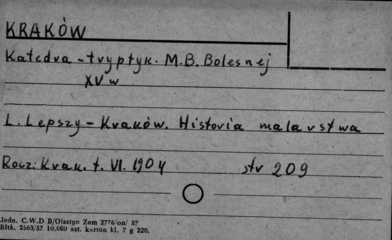 KRAKÓW
Katedra - tryptyk. M.B. Bolesnej
XV w
L. Lepszy - Kraków. Historia malarstwa
Rocz. Krak. t. VI. 1904 str 209
Jedn. C.W.D B/Olsztyn Zam 2776/on/ 57
Błtk. 2563/57 10.000 szt. karton kl. 7 g 220.